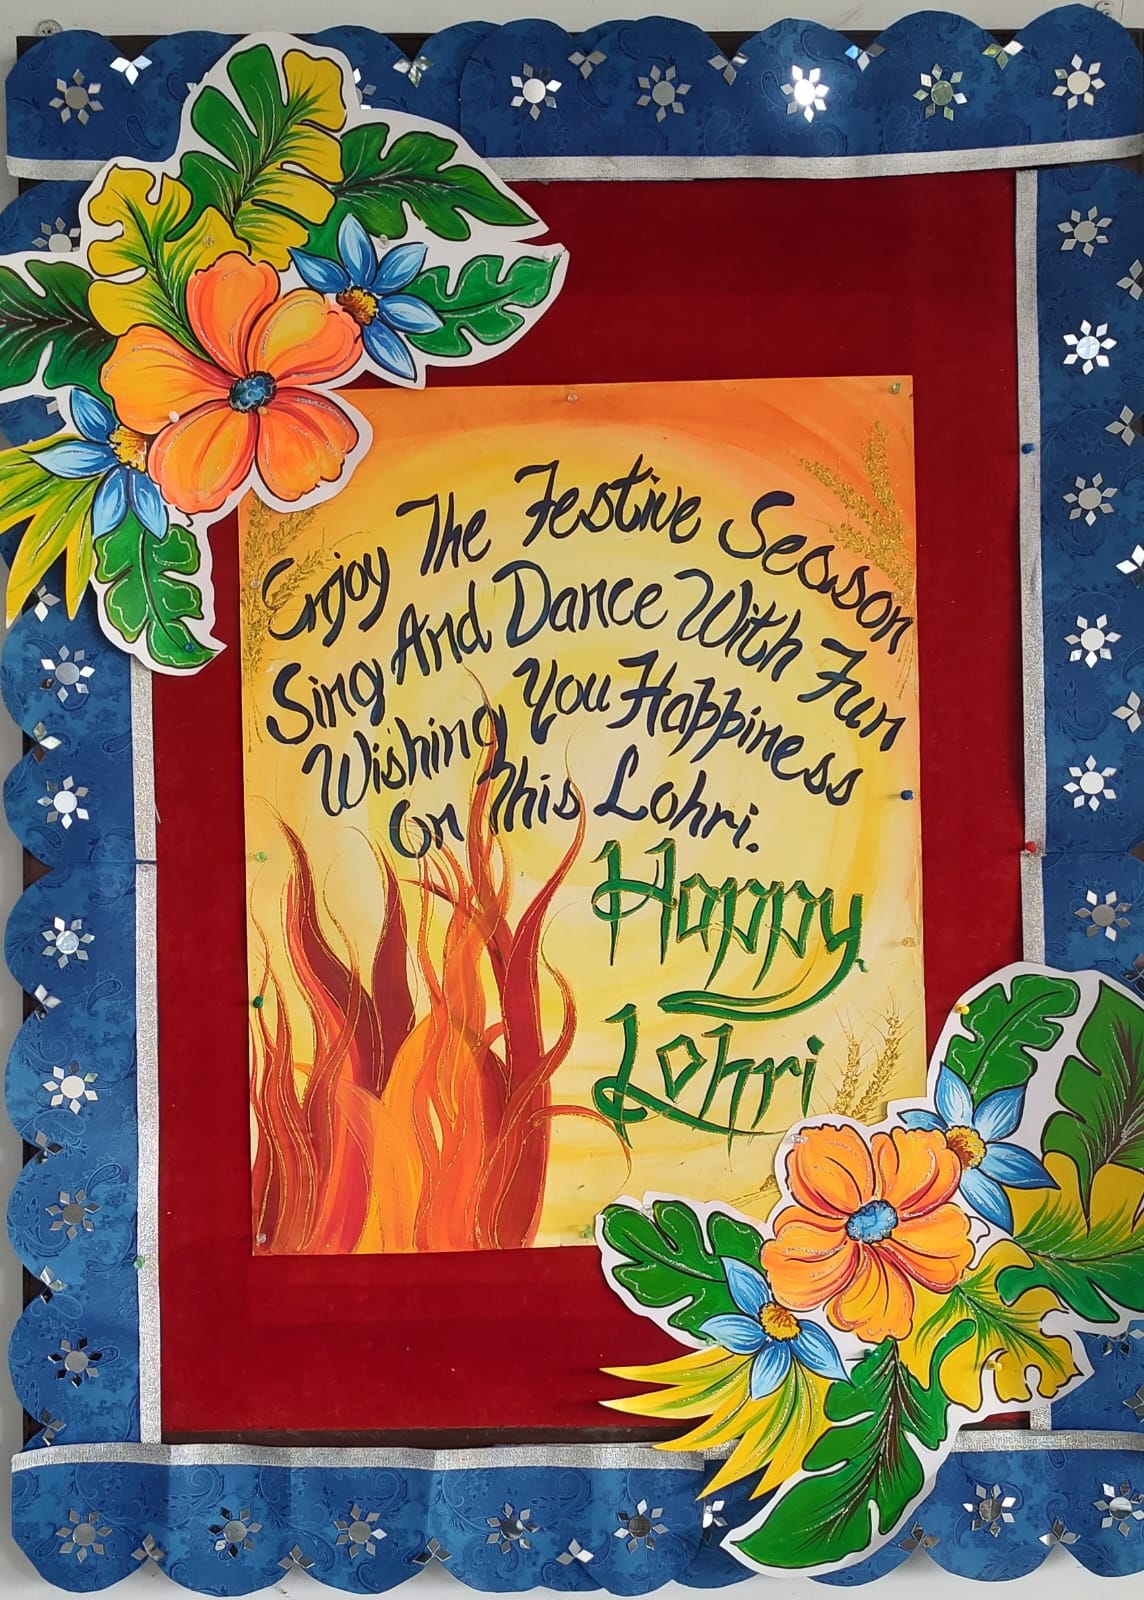 Enjoy The Festive Season
Sing And Dance With Fun
Wishing You Happiness
On This Lohri.
Happy
Lohri